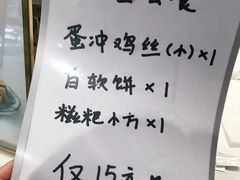 蛋冲鸡丝(小)×1
白软饼×1
糍粑小方×1
仅15元